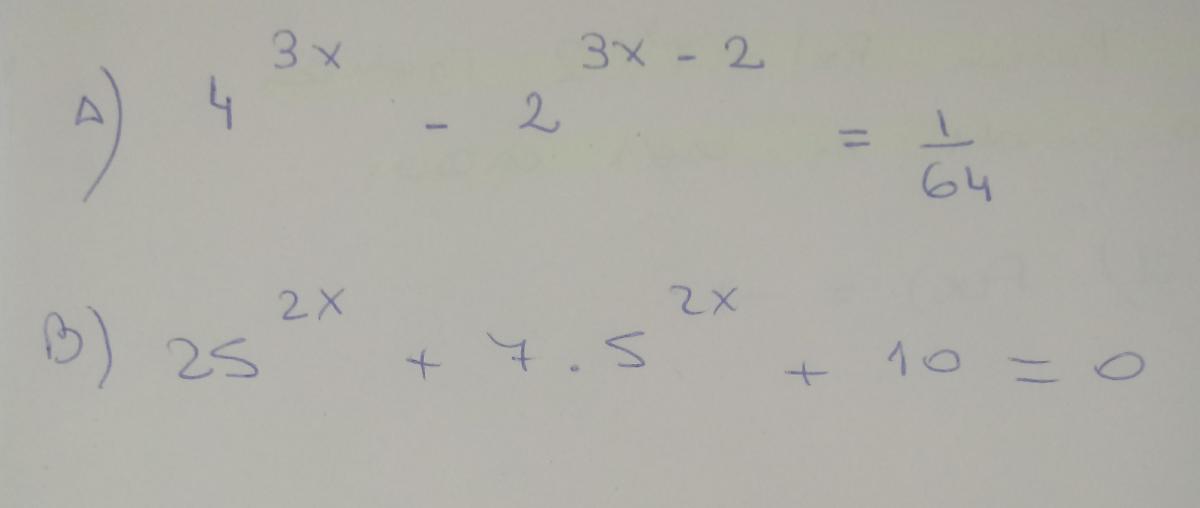 A) 4^{3x} - 2^{3x-2} = 1/64
B) 25^{2x} + 7.5^{2x} + 10 = 0